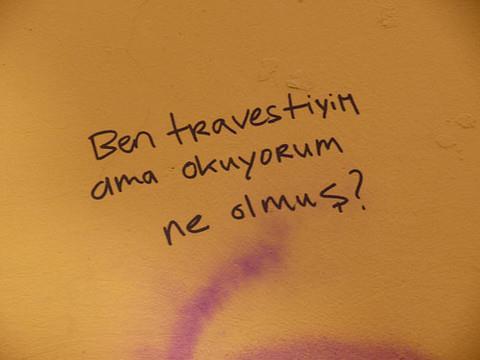 Ben travestiyim
ama okuyorum
ne olmuş?